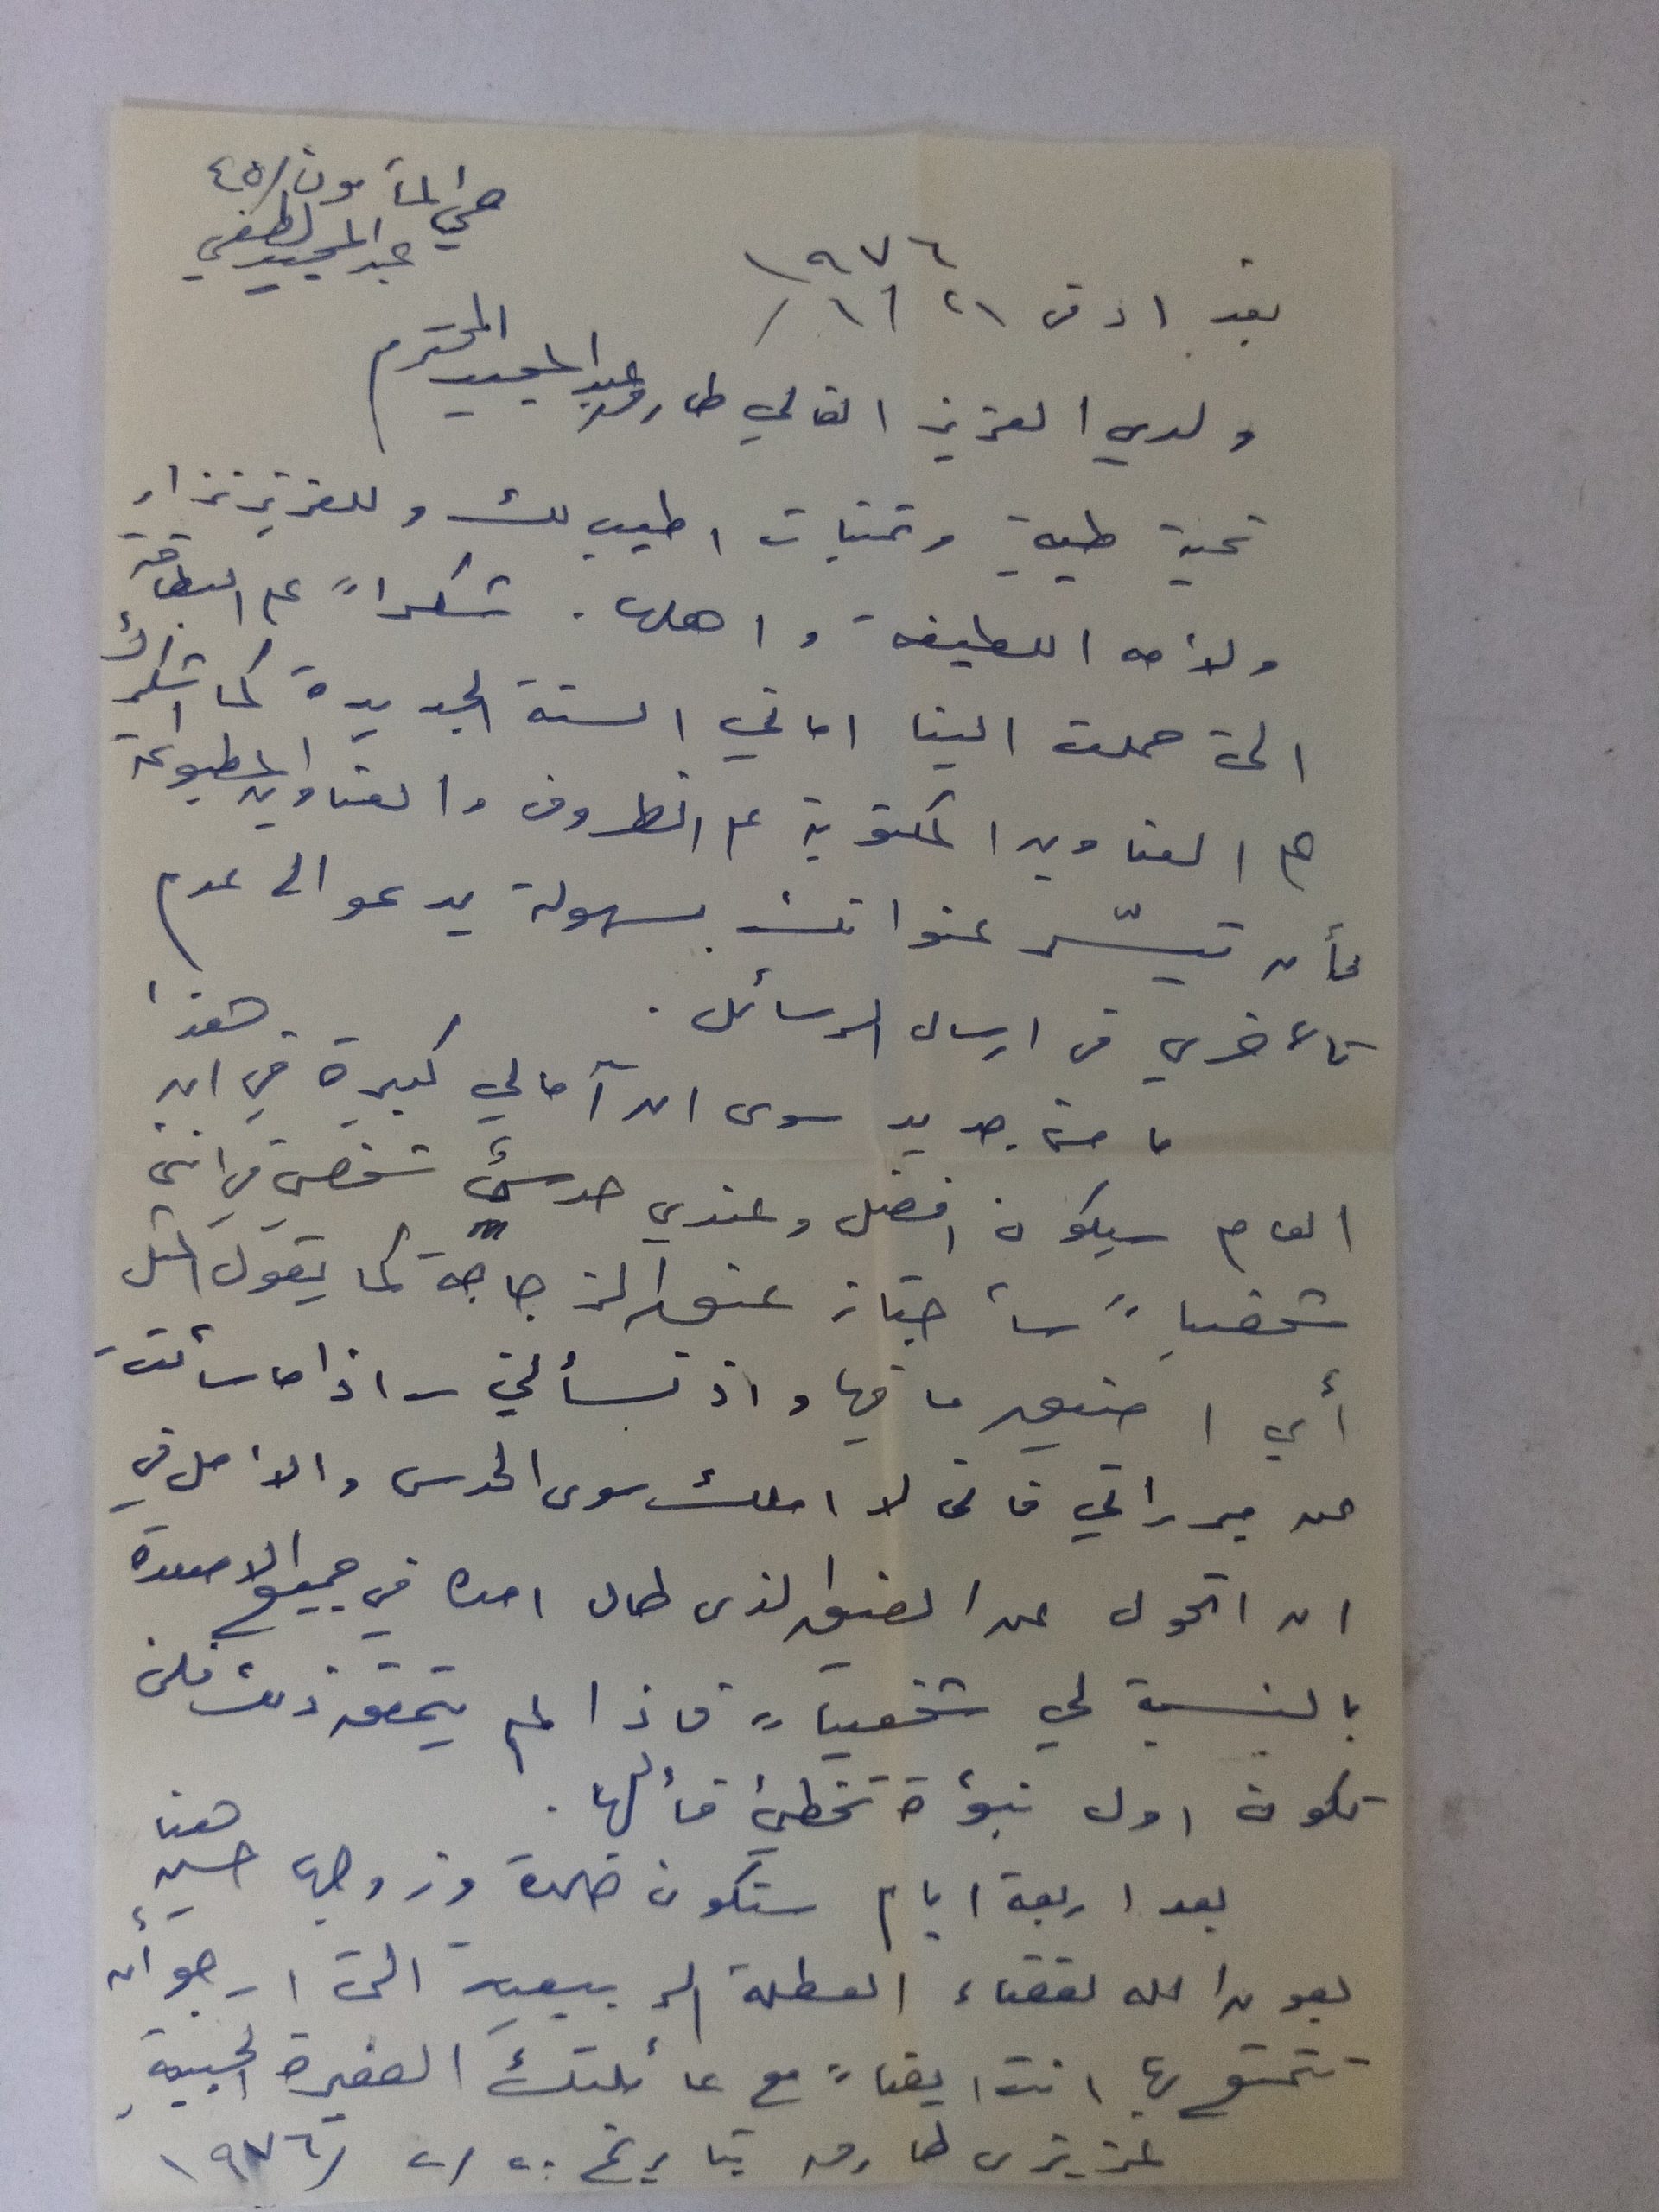 حي المأمون/٤٥
عبد المجيد لطفي
بغداد في ٢١/١/١٩٧٦
ولدي العزيز الغالي طارق عبد المجيد المحترم
تحية طيبة وتمنيات اطيب لك وللعزيز نزار
ولأمه اللطيفة واهلها. شكراً على البطاقة
التي حملت الينا اماني السنة الجديدة كما اشكرك
على العناوين المكتوبة على الظروف والعناوين المطبوعة
فأن تيسّر عنوانك بسهولة يدعو الى عدم
تأخري في ارسال الرسائل.
ما من جديد سوى ان آمالي كبيرة في ان هذا
العام سيكون افضل وعندي حدسٌ شخصي في انني
شخصياً سأجتاز عنق الزجاجة كما يقول المثل
أي اضيق ما فيها واذ تسألني - اذا ما سألت -
عن مبرراتي فاني لا املك سوى الحدس والامل في
ان اتحول عن الضيق الذي طال امده في جميع الاصعدة
بالنسبة لي شخصياً فاذا لم يتحقق ذلك فلن
تكون اول نبوءة تخطئ قائلها.
بعد اربعة ايام ستكون وزوجها حسين هنا
بعون الله لقضاء العطلة الربيعية التي ارجو أن
تتمتع بها انت ايضاً مع عائلتك الصغيرة الحبيبة
عزيزي طارق بتاريخ ٢٠/٢/١٩٧٦